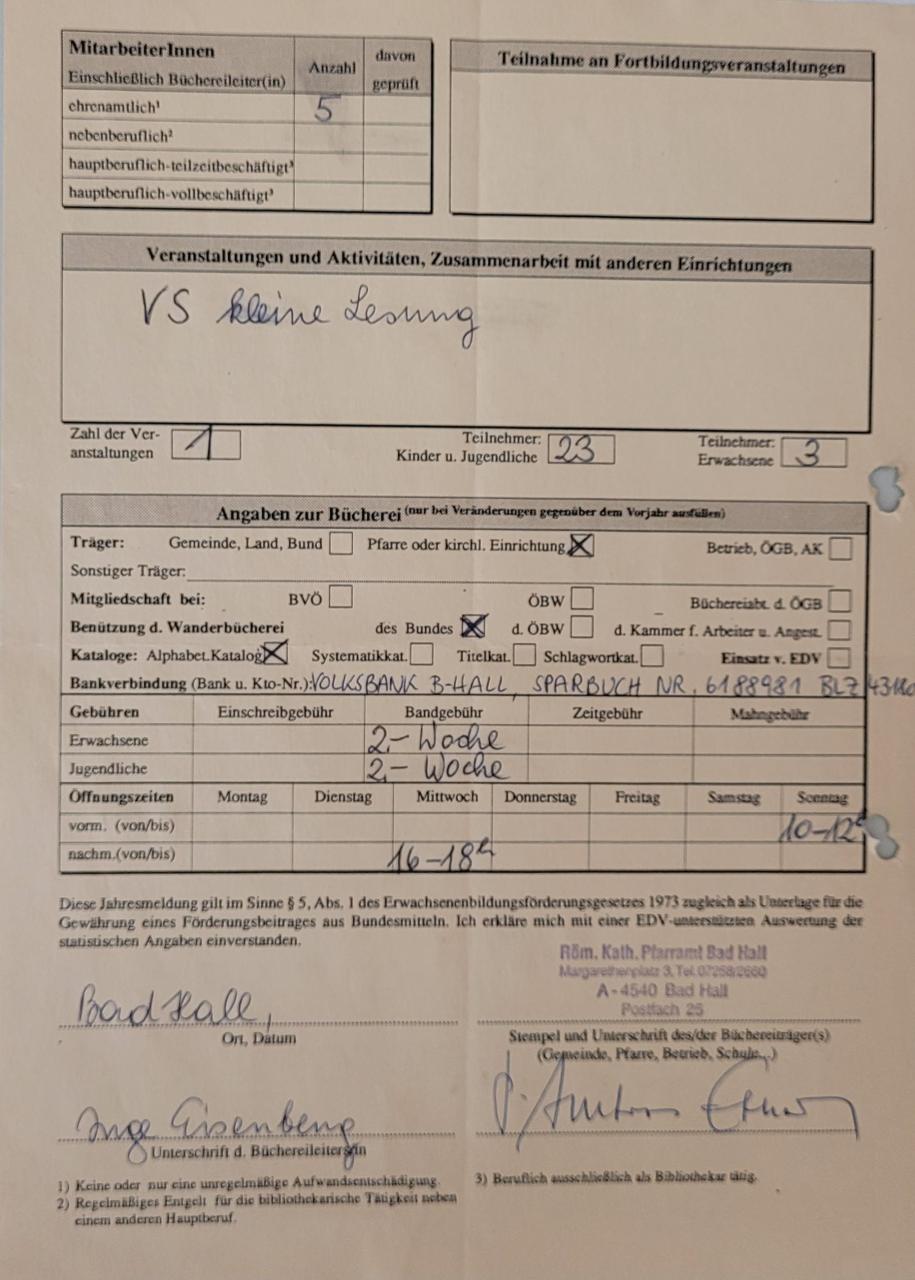 MitarbeiterInnen
Einschließlich Büchereileiter(in) Anzahl davon geprüft
ehrenamtlich¹ 5
nebenberuflich²
hauptberuflich-teilzeitbeschäftigt³
hauptberuflich-vollbeschäftigt³
Teilnahme an Fortbildungsveranstaltungen
Veranstaltungen und Aktivitäten, Zusammenarbeit mit anderen Einrichtungen
VS kleine Lesung
Zahl der Ver-
anstaltungen 1
Teilnehmer:
Kinder u. Jugendliche 23
Teilnehmer:
Erwachsene 3
Angaben zur Bücherei (nur bei Veränderungen gegenüber dem Vorjahr ausfüllen)
Träger: Gemeinde, Land, Bund Pfarre oder kirchl. Einrichtung Betrieb, ÖGB, AK
Sonstiger Träger:
Mitgliedschaft bei: BVÖ ÖBW Büchereiabt. d. ÖGB
Benützung d. Wanderbücherei des Bundes d. ÖBW d. Kammer f. Arbeiter u. Angest.
Kataloge: Alphabet.Katalog Systematikkat. Titelkat. Schlagwortkat. Einsatz v. EDV
Bankverbindung (Bank u. Kto-Nr.): VOLKSBANK B-HALL, SPARBUCH NR. 6188981 BLZ
Gebühren Einschreibgebühr Bandgebühr Zeitgebühr Mahngebühr
Erwachsene 2,- Woche
Jugendliche 2,- Woche
Öffnungszeiten Montag Dienstag Mittwoch Donnerstag Freitag Samstag Sonntag
vorm. (von/bis) 10-12
nachm.(von/bis) 16-18h
Diese Jahresmeldung gilt im Sinne § 5, Abs. 1 des Erwachsenenbildungsförderungsgesetzes 1973 zugleich als Unterlage für die
Gewährung eines Förderungsbeitrages aus Bundesmitteln. Ich erkläre mich mit einer EDV-unterstützten Auswertung der
statistischen Angaben einverstanden.
Röm. Kath. Pfarramt Bad Hall
Margarethenplatz 3, Tel. 07258/2660
A-4540 Bad Hall
Postfach 25
Bad Hall,
Ort, Datum
Stempel und Unterschrift des/der Büchereiträger(s)
(Gemeinde, Pfarre, Betrieb, Schule,..)
Inge Eisenberg
Unterschrift d. Büchereileiters/in
1) Keine oder nur eine unregelmäßige Aufwandsentschädigung.
2) Regelmäßiges Entgelt für die bibliothekarische Tätigkeit neben
einem anderen Hauptberuf.
3) Beruflich ausschließlich als Bibliothekar tätig.